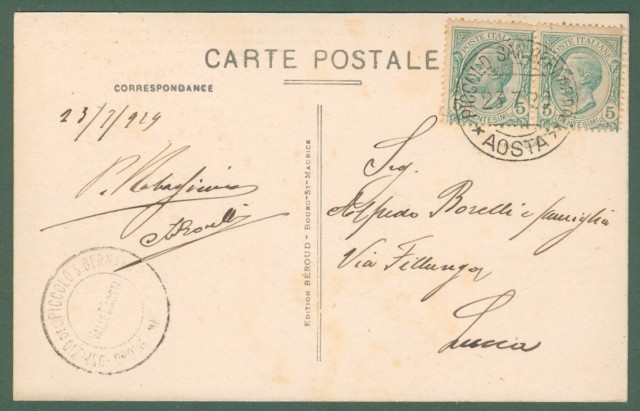 CARTE POSTALE
CORRESPONDANCE
23/7/929
POSTE ITALIANE
5 CENTESIMI 5
POSTE ITALIANE
5 CENTESIMI 5
PICCOLO SAN BERNARDO
★ AOSTA ★
Sig.
Alfredo Borelli e famiglia
Via Fillungo
Lucca
Edition BÉROUD - Bourg-St-Maurice
OSPIZIO DEL PICCOLO S. BERN